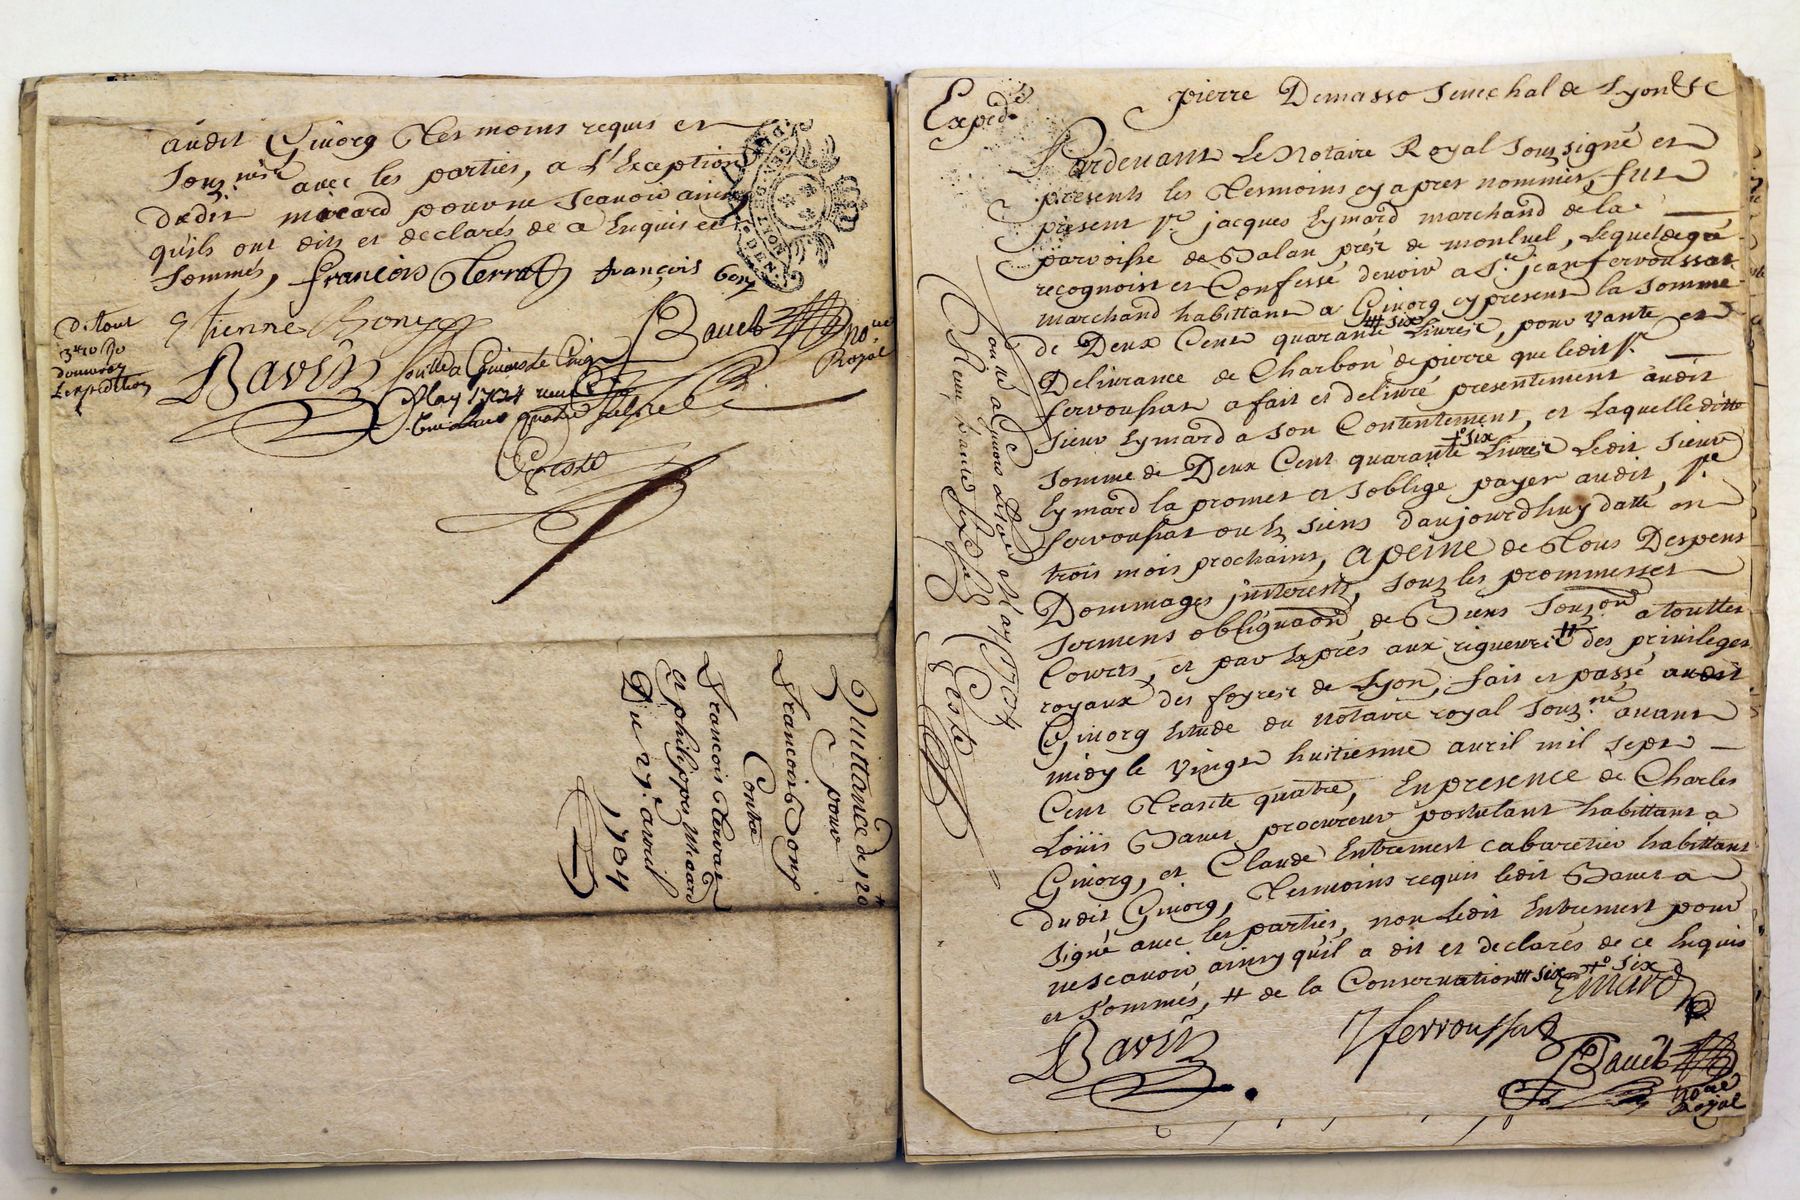 audit Givorg Tesmoins requis et
souz.né avec les parties, a L'Exception
dudit micard pour ne scavoir ainsy
qu'ils ont dits et declarés de ce Enquis et
sommés, françois Terrat françois bonj
Etienne Bonj
Bavet no.re
Royal
Bavet
May 1734
Coste
Quittance de 120 #
pour
francois Bonj
Contre
francois Terrat
et philippes Micard
Du 27. avril
1734
Exped.e
pierre Demasso Senechal de Lyon &c
Pardevant Le Notaire Royal Souz signé et
presents les Tesmoins cy apres nommés, fut
present Sr. jacques Eymard marchand de la
parroisse de Balan près de monluel, Lequel de gré
recognoist et Confesse devoir a Sr. jean fervoussat
marchand habittant a Givorg cy present la somme
de Deux Cent quarante six Livres, pour Vante et
Delivrance de Charbon de pierre que ledit Sr.
fervoussat a fait et delivré presentement audit
sieur Eymard a son Contentement, et Laquelle ditte
somme de Deux Cent quarante six Livres Ledit sieur
Eymard la promet et s'oblige payer audit Sr.
fervoussat ou ez siens d'aujourdhuy datte en
trois mois prochains, a peine de Tous Despens
Dommages jnterests, souz les prommesses
sermens obligãon, de Biens souz.on a touttes
Cours, et par Exprés aux rigueurs # des privileges
royaux des foyres de Lyon, fait et passé audit
Givorg Etude du notaire royal souz.né avant
midy le vingt huitieme avril mil sept
Cent Trante quatre, En presence de Charles
Loüis Bavet procureur postulant habittant a
Givorg, et Claude Entremest cabaretier habittant
dudit Givorg, Tesmoins requis ledit Bavet a
signé avec les parties, non ledit Entremest pour
ne scavoir ainsy qu'il a dit et declarés de ce Enquis
et sommés, # de la Conservation ## six +° six
Eimard
Bavet
J fervoussat
Bavet
no.re
Royal